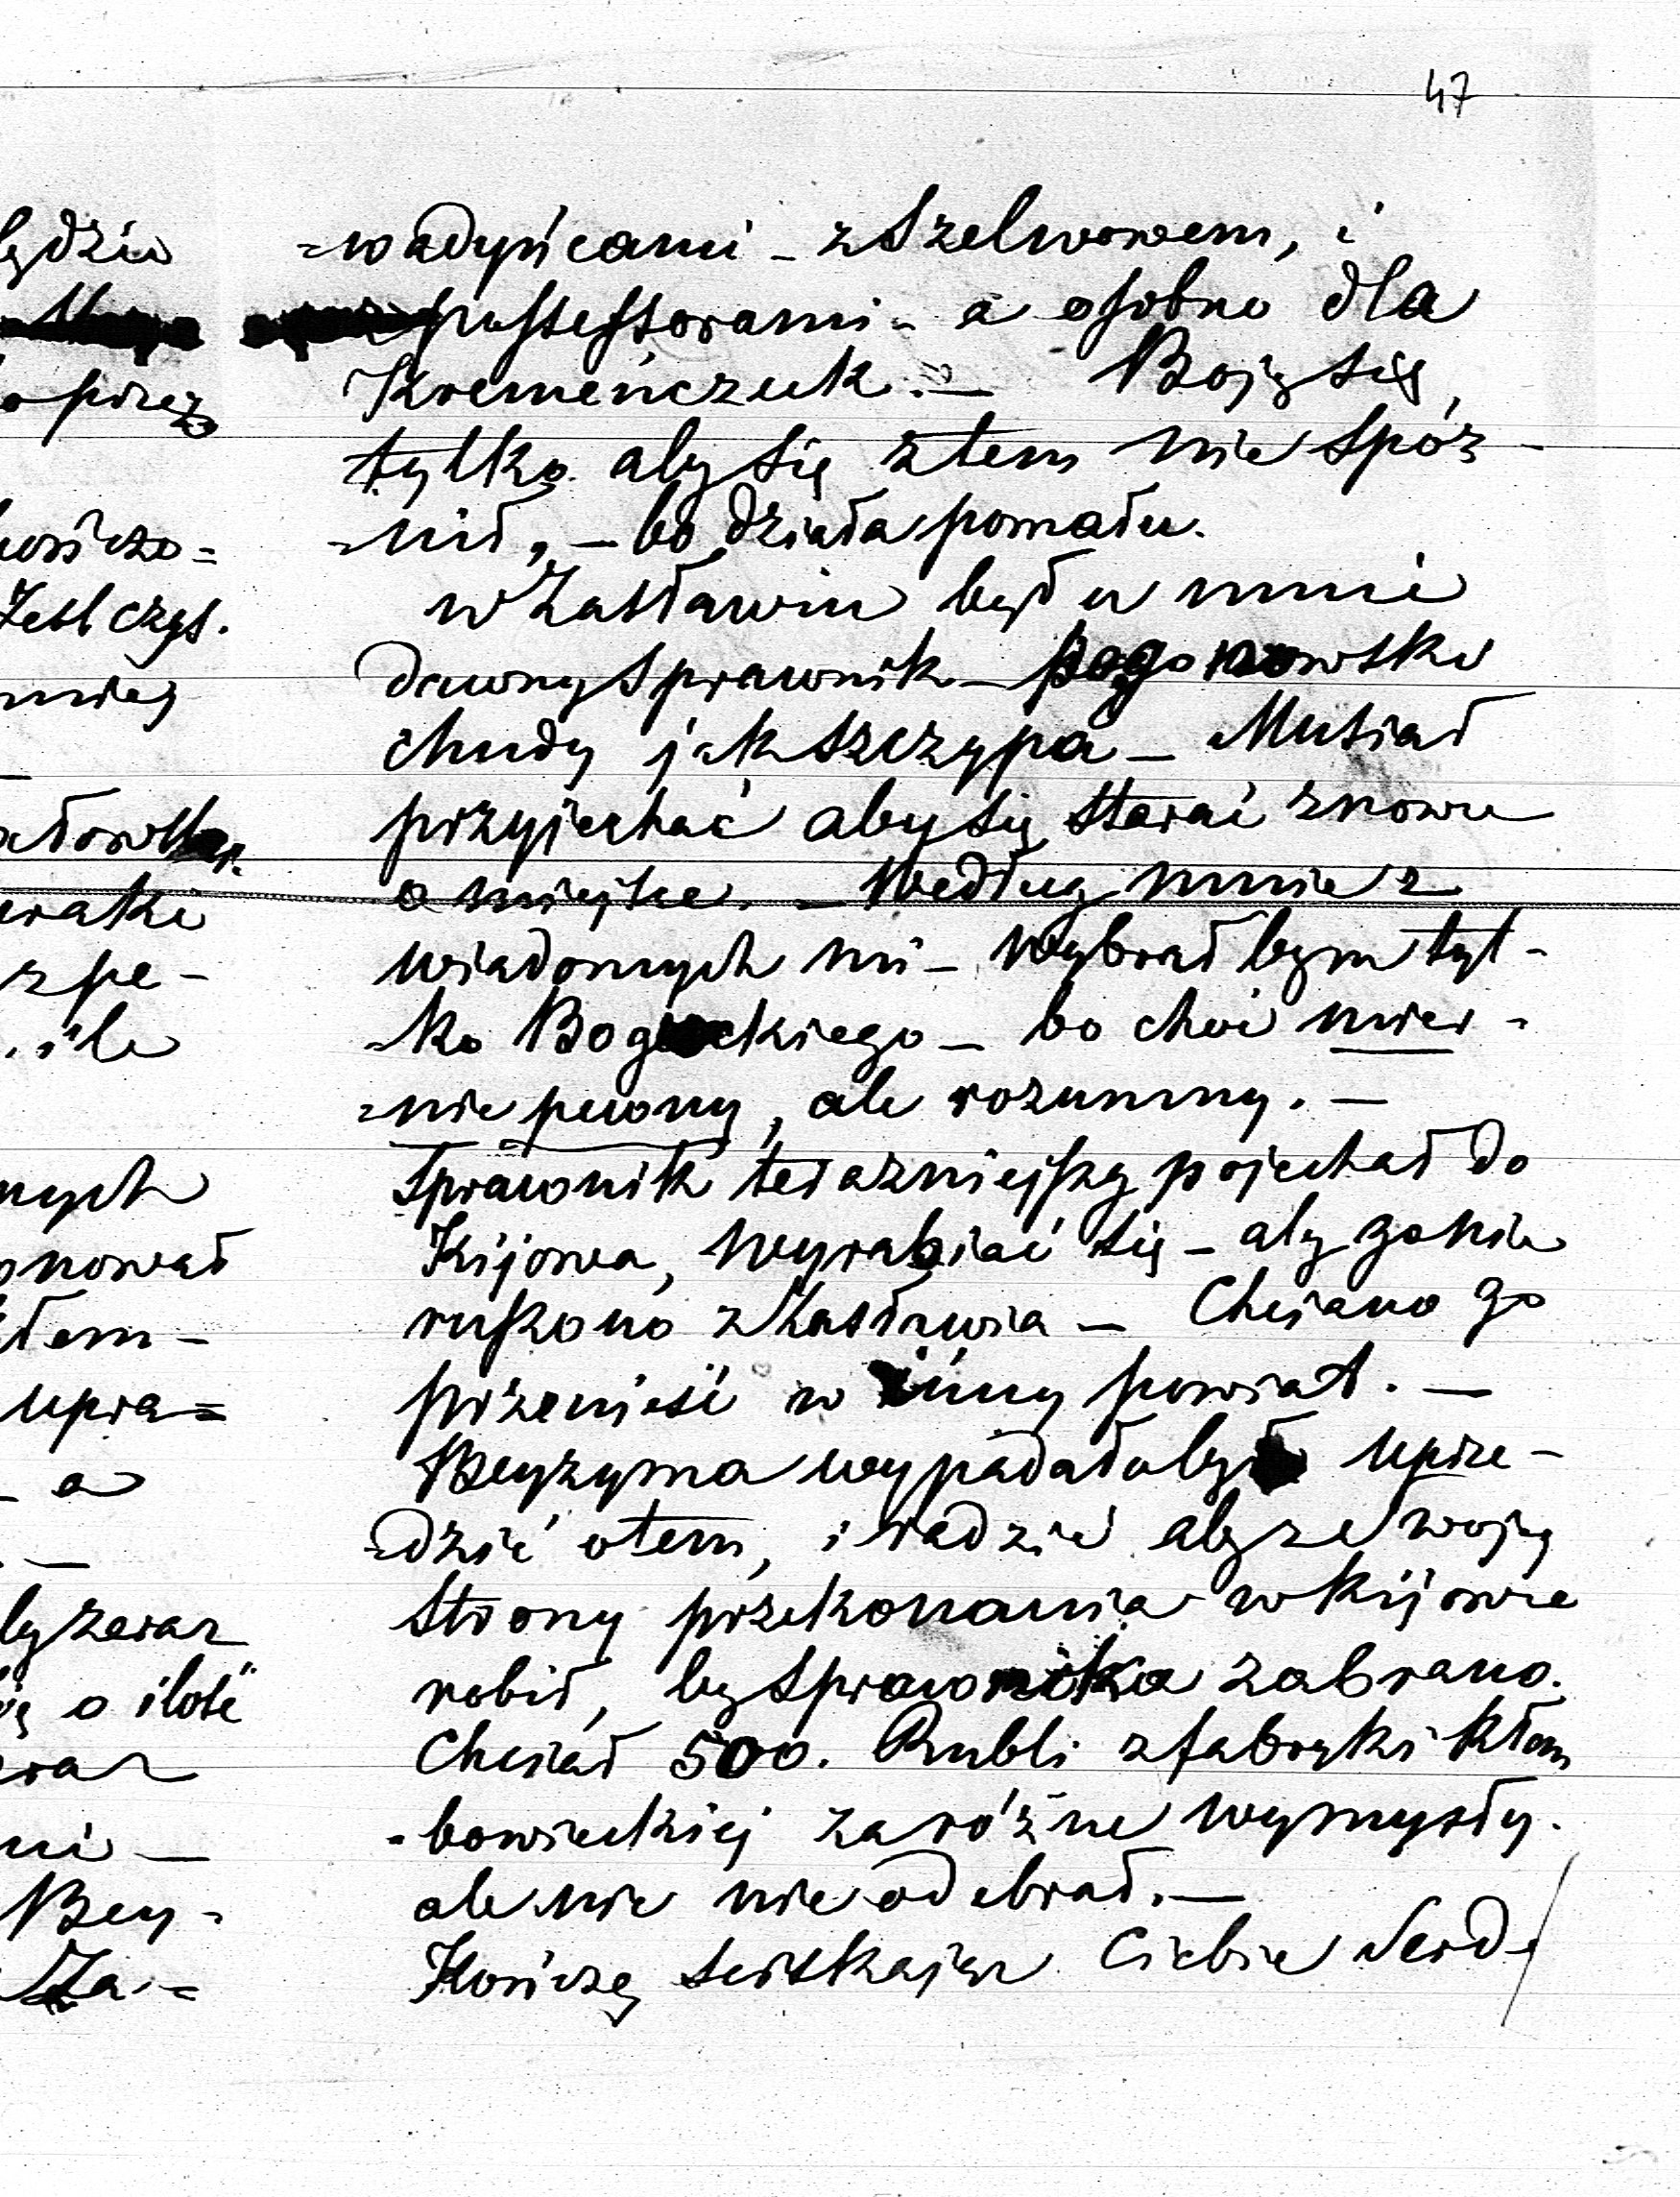 47
=wadyńcami – z Szelwowem, i
possessorami – a osobno dla
Kremeńczuk. – Boję się,
tylko aby się z tem nie spóź-
=nił, – bo działa pomału.
w Zasławiu był u mnie
dawny sprawnik – Pogonowski
chudy jak szczypa – Musiał
przyjechać aby się starać znowu
o miejsce. – Według mnie z
wiadomych mi – wybrał bym tyl-
-ko Bogackiego – bo choć mier-
=nie pewny, ale rozumny. –
Sprawnik teraźniejszy pojechał do
Kijowa, wyrabiać się – aby go nie
ruszono z Zasławia – Chciano go
przenieść w inny powiat. –
Beyzyma wypadałoby uprze-
=dzić o tem, i radzić aby ze swojej
strony przekonania w Kijowie
robił, by sprawnika zabrano.
Chciał 500. Rubli z fabryki Kłem
-bowieckiej za różne wymysły.
ale nic nie odebrał. –
Kończę ściskając Ciebie Serd-
ędziu
o przez
Jest czys.
eratki
z pe-
. ile
nych
nował
łem –
upra=
– a
by zaraz
o ilość
zaraz
mi –
Bey-
Za-=